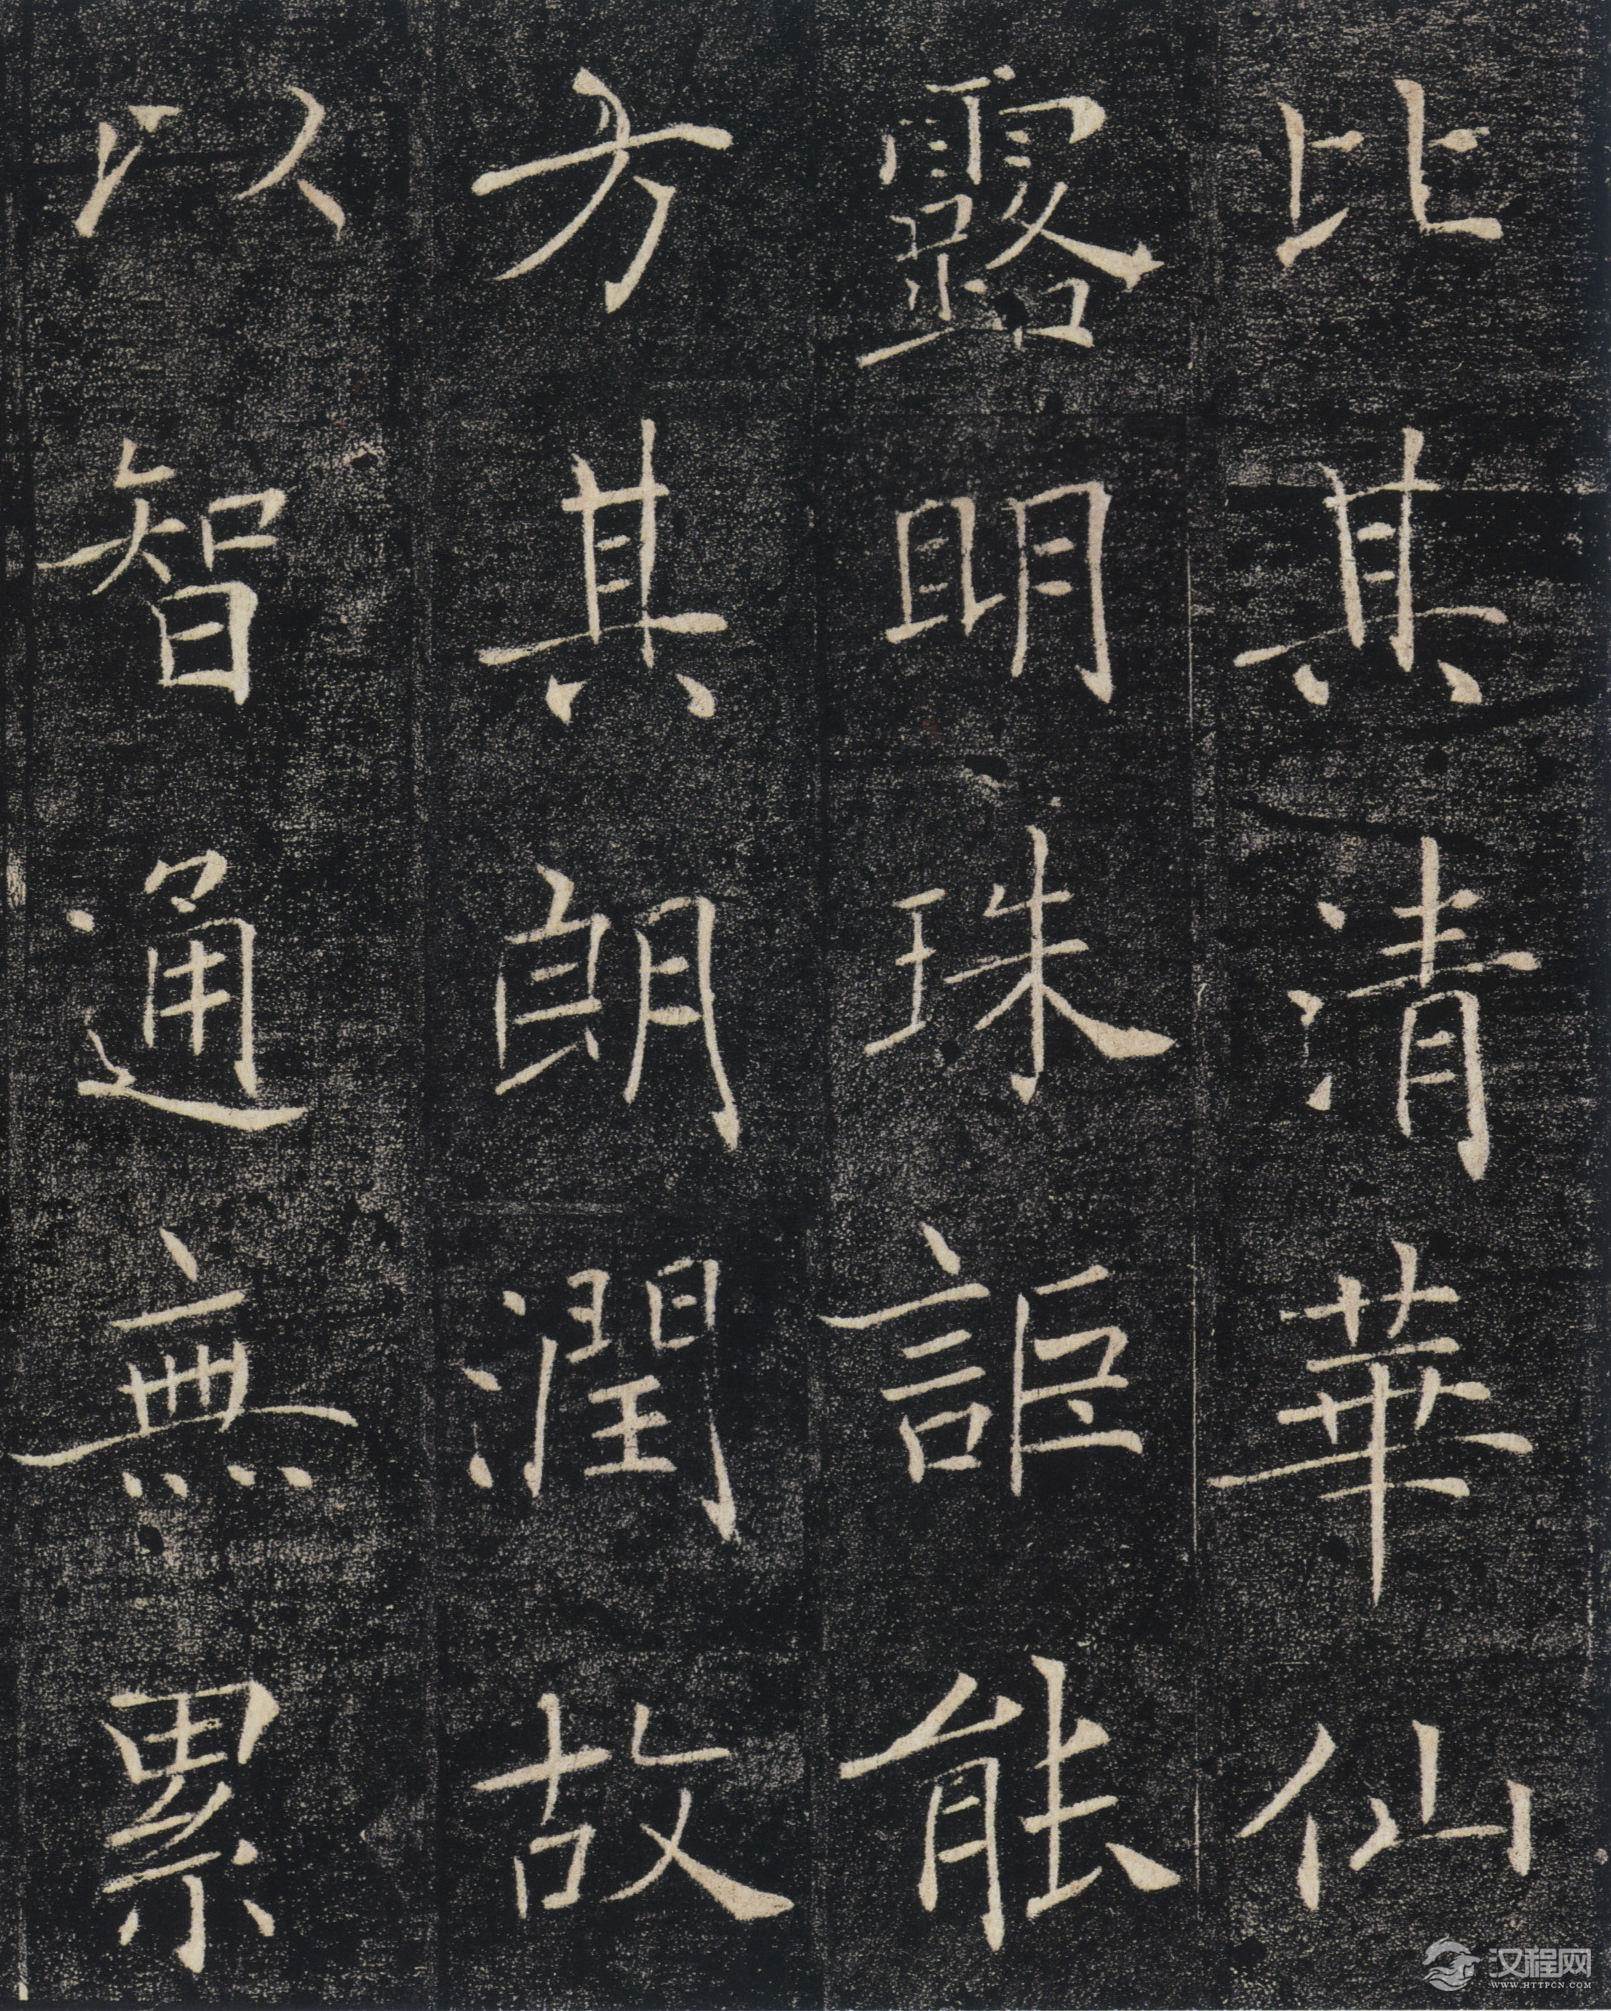 比其清華仙
露明珠詎能
方其朗潤故
以智通無累
汉程网
WWW.HTTPCN.COM